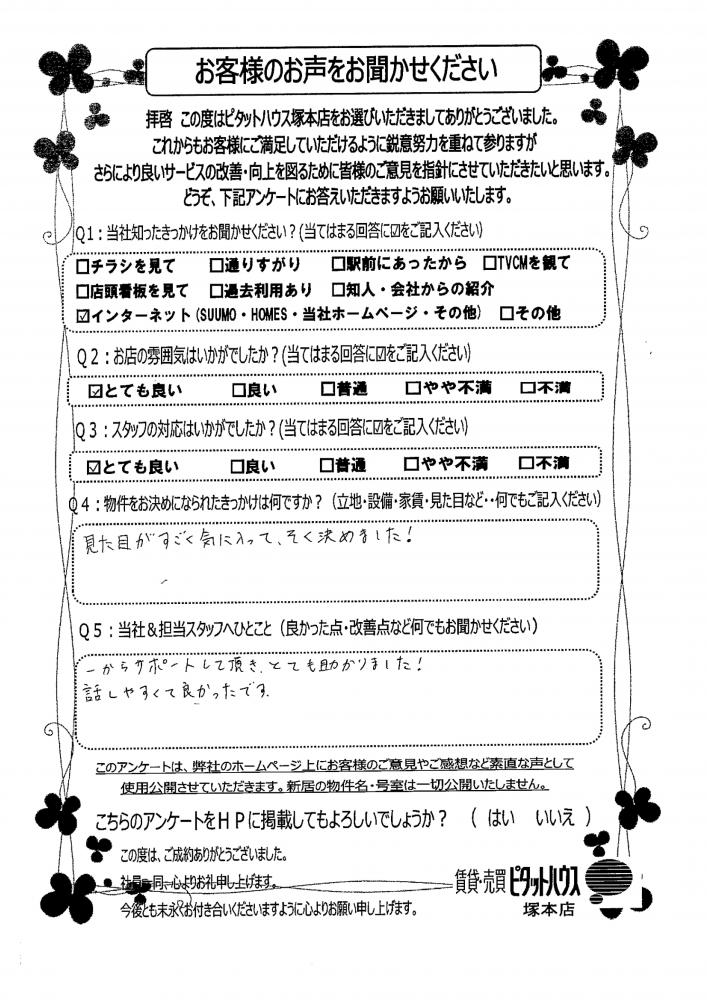 お客様のお声をお聞かせください
拝啓 この度はピタットハウス塚本店をお選びいただきましてありがとうございました。
これからもお客様にご満足していただけるように鋭意努力を重ねて参りますが
さらにより良いサービスの改善・向上を図るために皆様のご意見を指針にさせていただきたいと思います。
どうぞ、下記アンケートにお答えいただきますようお願いいたします。
Q1：当社知ったきっかけをお聞かせください？(当てはまる回答に☑をご記入ください)
☐チラシを見て ☐通りすがり ☐駅前にあったから ☐TVCMを観て
☐店頭看板を見て ☐過去利用あり ☐知人・会社からの紹介
☑インターネット(SUUMO・HOMES・当社ホームページ・その他) ☐その他
Q2：お店の雰囲気はいかがでしたか？(当てはまる回答に☑をご記入ください)
☑とても良い ☐良い ☐普通 ☐やや不満 ☐不満
Q3：スタッフの対応はいかがでしたか？(当てはまる回答に☑をご記入ください)
☑とても良い ☐良い ☐普通 ☐やや不満 ☐不満
Q4：物件をお決めになられたきっかけは何ですか？（立地・設備・家賃・見た目など・・何でもご記入ください)
見た目がすごく気に入って、そく決めました！
Q5：当社＆担当スタッフへひとこと（良かった点・改善点など何でもお聞かせください）
一からサポートして頂き、とても助かりました！
話しやすくて良かったです。
このアンケートは、弊社のホームページ上にお客様のご意見やご感想など素直な声として
使用公開させていただきます。新居の物件名・号室は一切公開いたしません。
こちらのアンケートをＨＰに掲載してもよろしいでしょうか？ （ はい いいえ ）
この度は、ご成約ありがとうございました。
社員一同、心よりお礼申し上げます。
今後とも末永くお付き合いくださいますように心よりお願い申し上げます。
賃貸・売買 ピタットハウス
塚本店